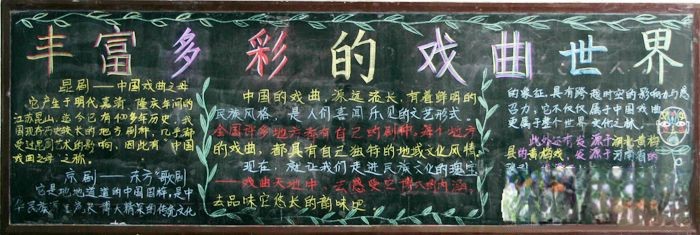 丰富多彩的戏曲世界
昆剧——中国戏曲之母
它产生于明代嘉靖、隆庆年间的
江苏昆山,迄今已有400多年历史,我
国现存历史较长的地方剧种,几乎都
受过昆剧艺术的影响,因此有“中国
戏曲之母”之称。
京剧——东方“歌剧”
它是地地道道的中国国粹,是中
华民族 博大精深的传统文化
中国的戏曲,源远流长,有着鲜明的
民族风格,是人们喜闻乐见的文艺形式。
全国许多地方都有自己的剧种,每个地方
的戏曲,都具有自己独特的地域文化风情。
现在,就让我们走进民族文化的瑰宝
——戏曲天地中,去感受它博大的内涵,
去品味它悠长的韵味吧
的象征,具有跨越时空的影响力与感
召力,它不仅仅属于中国戏曲,
更属于整个世界文化之脉。
此外还有发源于湖北黄梅
县的黄梅戏,发源于河南省的